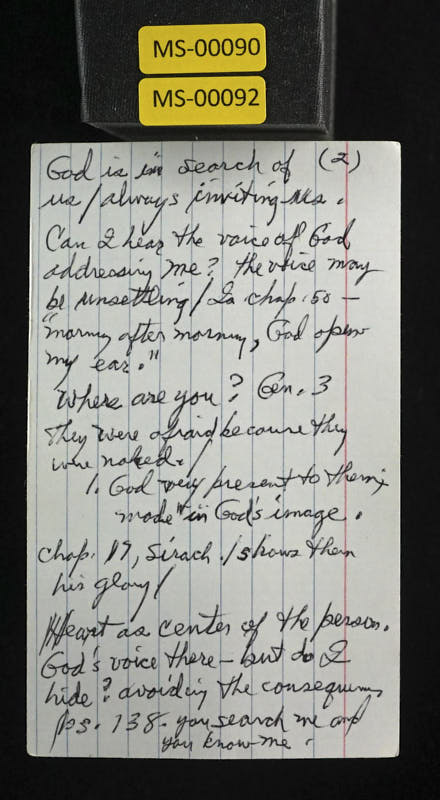 MS-00090
MS-00092
God is in search of (2)
us / always inviting us.
Can I hear the voice of God
addressing me? the voice may
be unsettling / Is chap. 50 —
"morning after morning, God opens
my ear."
Where are you? Gen. 3
They were afraid because they
were naked.
1. God very present to them;
made "in God's image.
chap. 17, Sirach / shows them
his glory /
Heart as center of the person.
God's voice there - but do I
hide? avoiding the consequences
ps. 138. you search me and
you know me.